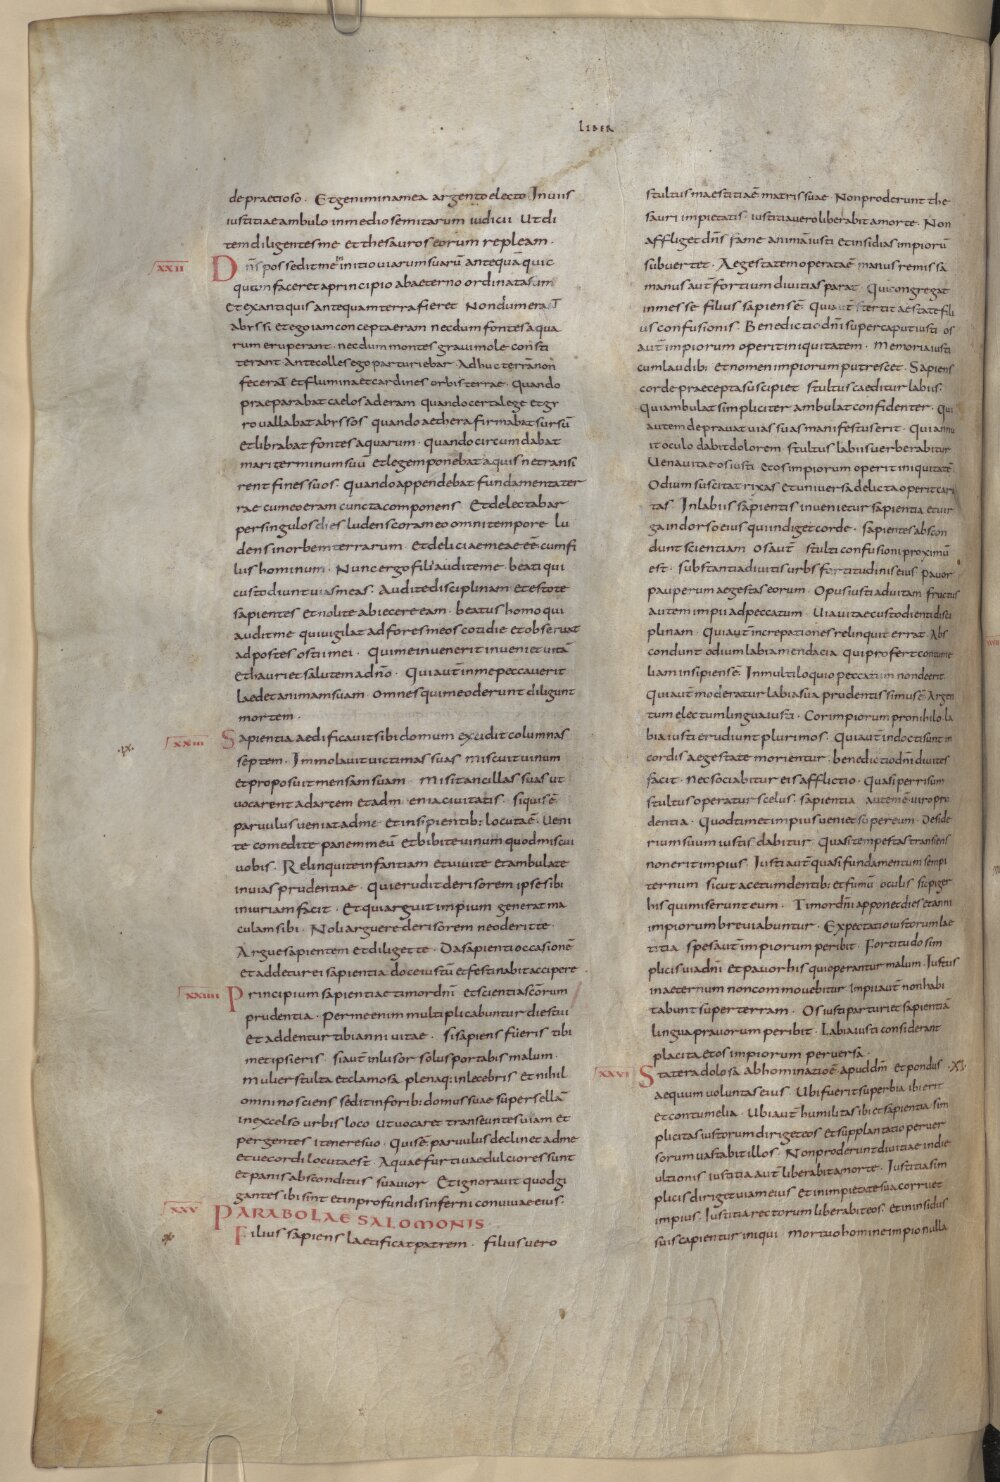 LIBER
de praetioso · Et genimina mea argento electo In uiis
iustitiae ambulo in medio semitarum iudicii Ut di
tem diligentes me et thesauros eorum repleam ·
XXII
Dn̄s possedit me in initio uiarum suarū antequā quic
quam faceret a principio ab aeterno ordinata sum
Et ex antiquis antequam terra fieret Nondum erāt
abyssi et ego iam concepta eram necdum fontes aqua
rum eruperant · necdum montes graui mole consti
terant Ante colles ego parturiebar · Adhuc terrā non
fecerat et flumina et cardines orbis terrae · Quando
praeparabat caelos aderam quando certa lege et gy
ro uallabat abyssos quando aethera firmabat sursū
et librabat fontes aquarum · quando circumdabat
mari terminum suū et legem ponebat aquis ne transi
rent fines suos · Quando appendebat fundamenta ter
rae cum eo eram cuncta componens Et delectabar
per singulos dies ludens coram eo omni tempore lu
dens in orbem terrarum · Et deliciae meae eē cum fi
lius hominum · Nunc ergo filii audite me · beati qui
custodiunt uias meas · Audite disciplinam et estote
sapientes et nolite abiecere eam · beatus homo qui
audit me qui uigilat ad fores meos cotidie et obseruat
ad postes ostii mei · Qui me inuenerit inueniet uitā
et hauriet salutem a dn̄o · Qui aut̄ in me peccauerit
laedet animam suam · omnes qui me oderunt diligunt
mortem ·
XXIII
Sapientia aedificauit sibi domum excidit columnas
septem · Immolauit uictimas suas miscuit uinum
et proposuit mensam suam · misit ancillas suas ut
uocarent ad arcem et ad moenia ciuitatis · siquis ē
paruulus ueniat ad me · et insipientib: locuta ē · Ueni
te comedite panem meū et bibite uinum quod miscui
uobis · Relinquite infantiam et uiuite et ambulate
in uias prudentiae · Qui erudit derisorem ipse sibi
iniuriam facit · Et qui arguit impium generat ma
culam sibi · Noli arguere derisorem ne oderit te
Argue sapientem et diliget te · Da sapienti occasionē
et addetur ei sapientia doce iustū et festinabit accipere ·
XXIIII
Principium sapientiae timor dn̄i et scientia sc̄orum
prudentia · Per me enim multiplicabuntur dies tui
et addentur tibi anni uitae · si sapiens fueris tibi
metipsi eris · si aut̄ inlusor solus portabis malum ·
mulier stulta et clamosa plenaq; inlecebris et nihil
omnino sciens sedit in forib: domus suae super sellā
in excelso urbis loco Ut uocaret transeuntes uiam et
pergentes itenere suo · Quis ē paruulus declinet ad me
et uecordi locuta est · Aquae furtiuae dulciores sunt
et panis absconditus suauior Et ignorauit quod gi
gantes ibi sint et in profundis inferni conuiuae eius ·
XXV
PARABOLAE SALOMONIS
Filius sapiens laetificat patrem · filius uero
stultus maestitia ē matris suae Non proderunt the
sauri impietatis · iustitia uero liberabit a morte · Non
affliget dn̄s fame animā iusti et insidias impiorū
subuertet · Aegestatem operata ē manus remissa
manus aut̄ fortium diuitias parat Qui congregat
in messe filius sapiens ē Qui aut̄ stertit aestate fili
us confusionis · Benedictio dn̄i super caput iusti os
aut̄ impiorum operit iniquitatem · Memoria iusti
cum laudib: et nomen impiorum putrescet · Sapiens
corde praecepta suscipiet stultus caeditur labiis ·
Qui ambulat simpliciter ambulat confidenter · qui
autem deprauat uias suas manifestus erit · Qui annu
it oculo dabit dolorem stultus labiis uerberabitur
Uena uitae os iusti et os impiorum operit iniquitatē
Odium suscitat rixas et uniuersa delicta operit cari
tas · In labiis sapientis inuenietur sapientia et uir
ga in dorso eius qui indiget corde · sapientes abscon
dunt scientiam os aut̄ stulti confusioni proximū
est · substantia diuitis urbs fortitudinis eius pauor
pauperum aegestas eorum · Opus iusti ad uitam fructus
autem impii ad peccatum · Uia uitae custodienti disci
plinam · Qui aut̄ increpationes relinquit errat · Abs
condunt odium labia mendacia qui profert contume
liam insipiens ē In multiloquio peccatum non deerit
Qui aut̄ moderatur labia sua prudentissimus ē Argen
tum electum lingua iusti · Cor impiorum pro nihilo la
bia iusti erudiunt plurimos · Qui aut̄ indocti sunt in
cordis aegestate morientur · benedictio dn̄i diuites
facit · nec sociabitur eis afflictio · Quasi per risum
stultus operatur scelus · sapientia autem ē uiro pru
dentia · Quod timet impius ueniet super eum · Deside
rium suum iustis dabitur Quasi tempestas transiens
non erit impius Iusti aut̄ quasi fundamentum sempi
ternum sicut acetum dentib: et fumū oculis sic piger
his qui miserunt eum · Timor dn̄i apponet dies et anni
impiorum breuiabuntur · Expectatio iustorum lae
titia spes aut̄ impiorum peribit · Fortitudo sim
plicis uia dn̄i et pauor his qui operantur malum · Iustus
in aeternum non commouebitur impii aut̄ non habi
tabunt super terram · Os iusti parturiet sapientiā
lingua prauorum peribit · Labia iusti considerant
placita et os impiorum peruersa ·
XXVI
Statera dolosa abhominatio ē apud dn̄m et pondus ·XI·
aequum uoluntas eius Ubi fuerit superbia ibi erit
et contumelia · Ubi aut̄ humilitas ibi et sapientia · sim
plicitas iustorum diriget eos et supplantatio peruer
sorum uastabit illos · Non proderunt diuitiae in die
ultionis iustitia aut̄ liberabit a morte · Iustitia sim
plicis diriget uiam eius et in impietate sua corruet
impius · Iustitia rectorum liberabit eos · et in insidiis
suis capientur iniqui mortuo homine impio nulla